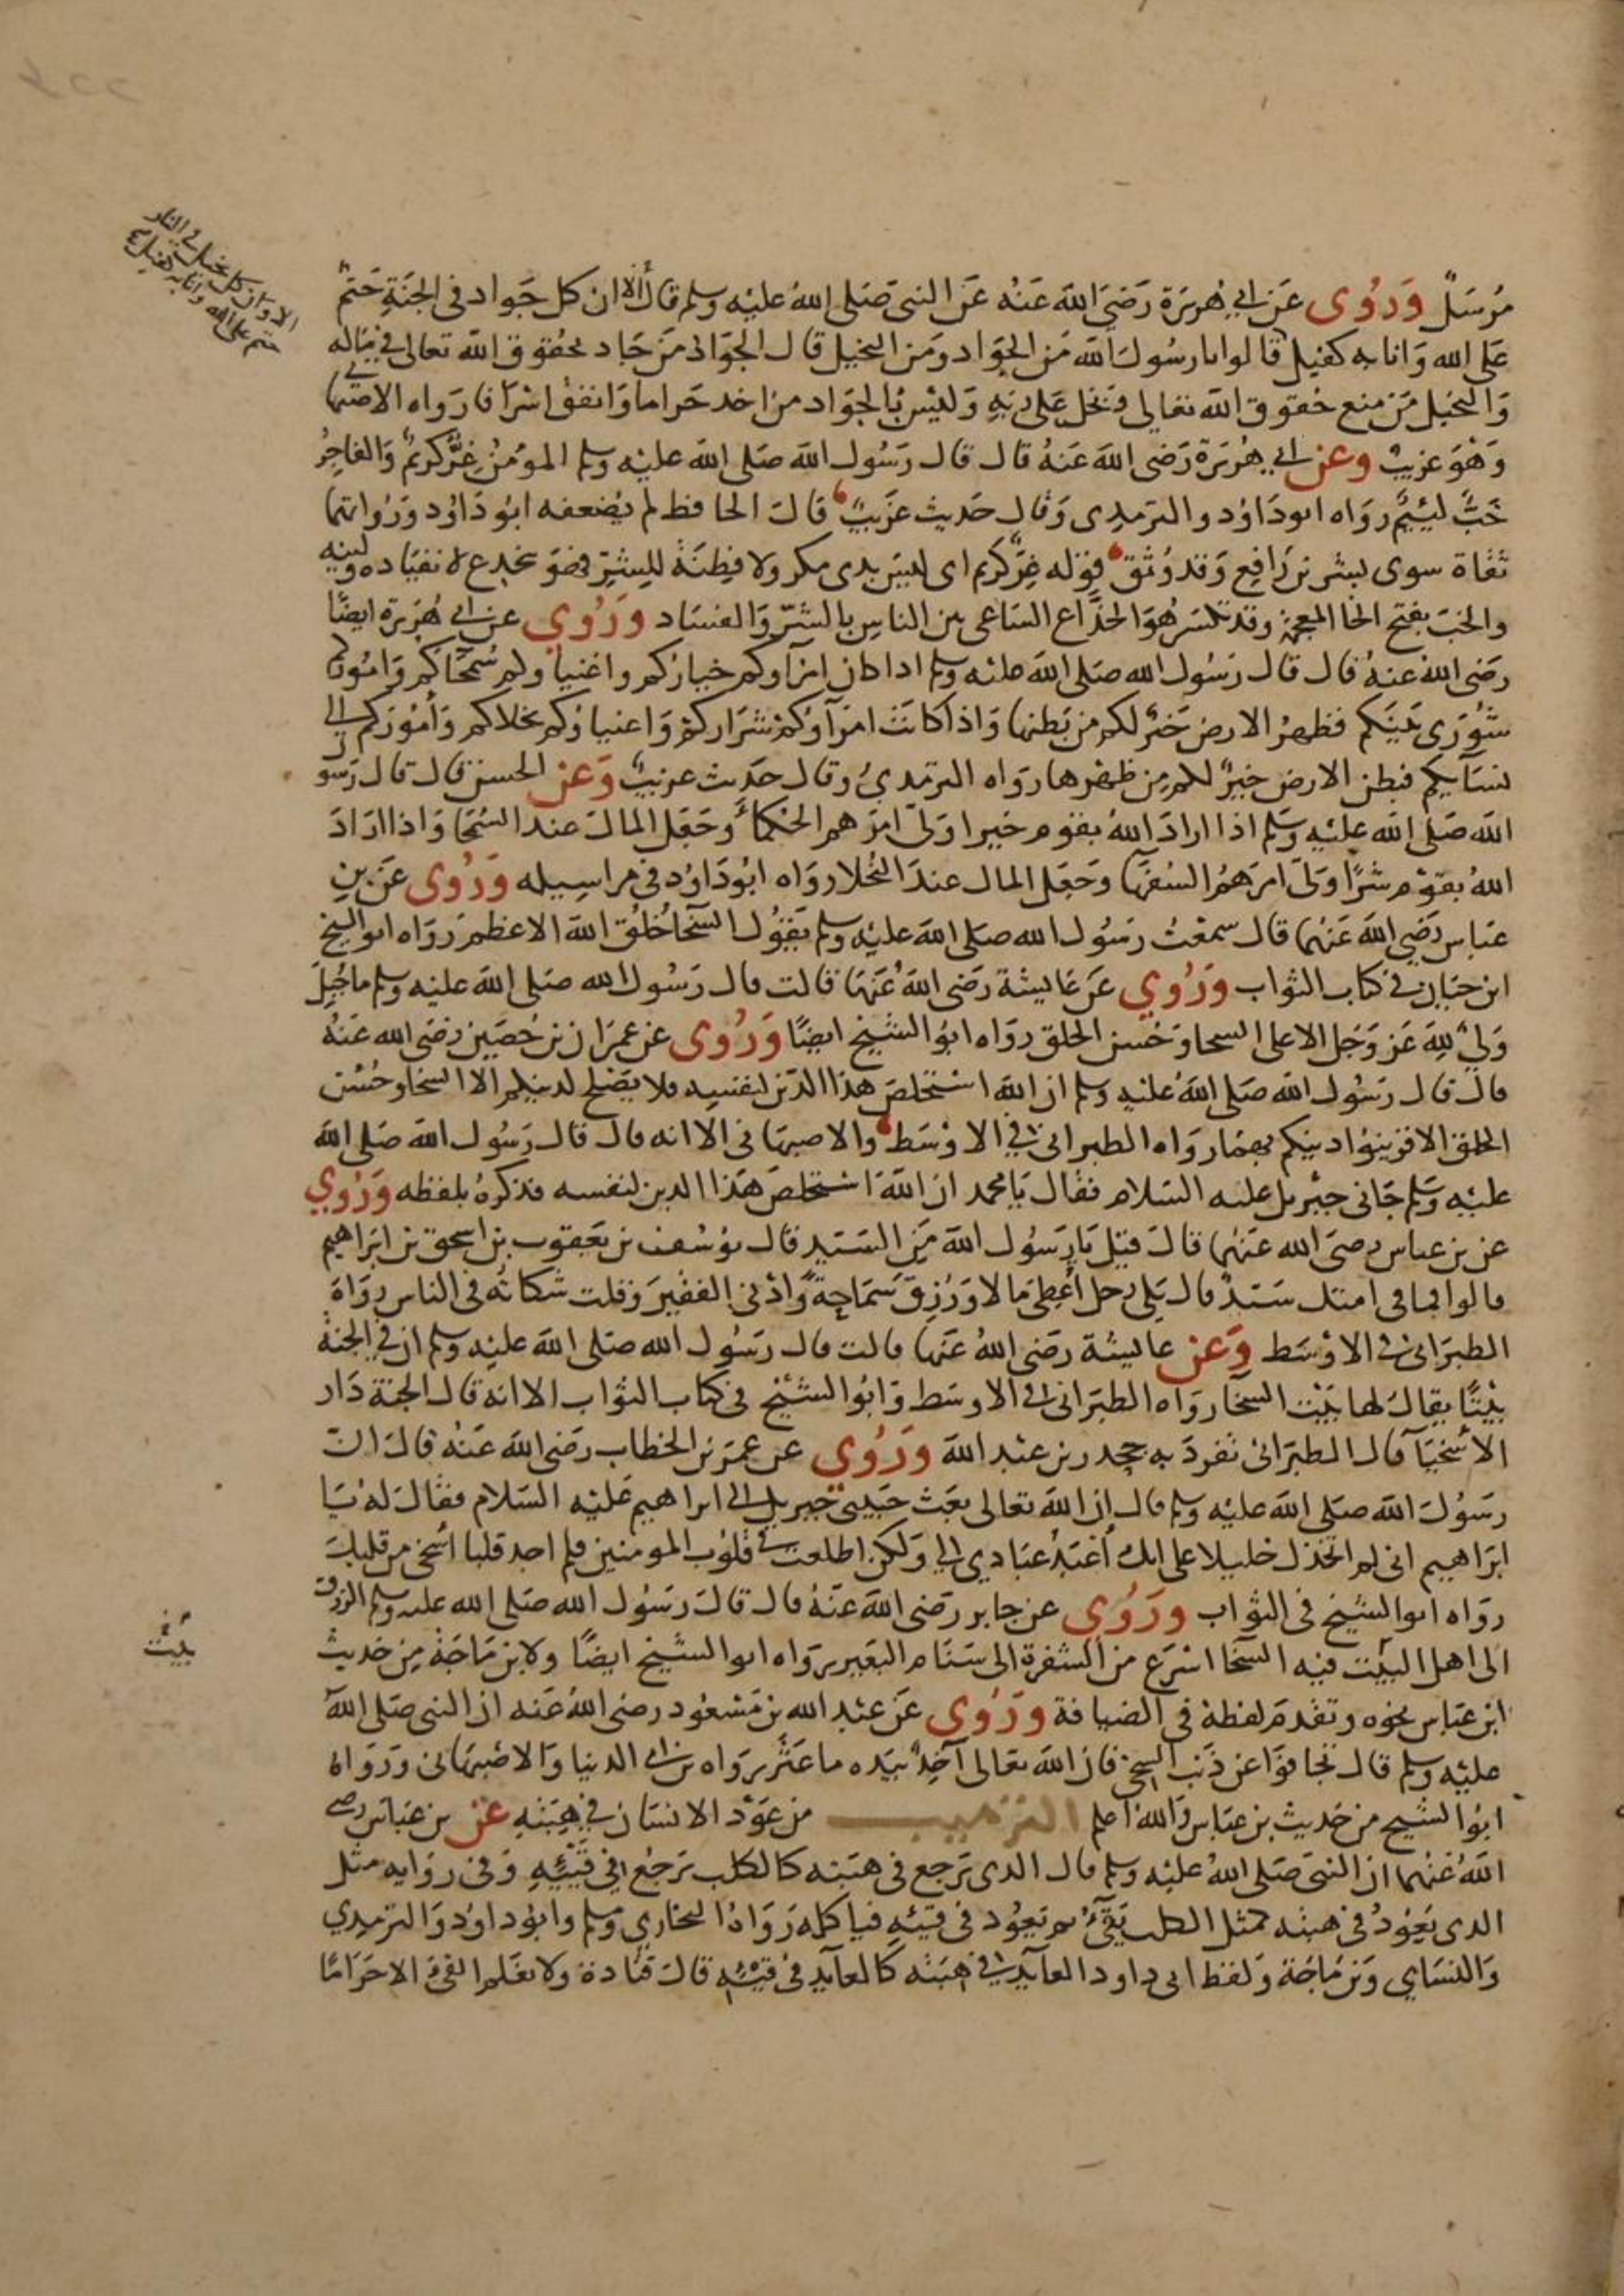 الا وان كل بخيل في النار
حتم على الله وانا به كفيل
مُرسَلٌ وَرُوى عَن ابي هُريرَة رَضيَ اللهَ عَنهُ عَن النبى صَلى اللهُ عليْه وسلم قال ألا ان كل جَواد فى الجنَةِ حَتمٌ
عَلى الله وَانا به كفيل قالوا يا رسُولَ الله مَن الجَواد ومَن البخيل قال الجَوَاد مَن جَاد بحقوق الله تعالى في مَاله
وَالبخيل مَن منع حُقوق الله تعالى وبَخل عَلى ربهِ وَليْسَ الجَواد من اخد حَراما وَانفق اسْرَافا رَواه الاصبهانى
وَهْوَ غريبْ وعن ابي هُرَيرَة رَضى اللهَ عَنهُ قال قال رَسُول الله صَلى الله عليْه وسلم المومُن غِرٌّ كريمٌ وَالفاجِرُ
خَبٌّ لَئيمٌ رواه ابودَاوُد والترمدى وَقال حَديث غَريبٌ قال الحافظ لم يُضعفه ابُو دَاوُد وَرُواتهما
ثقاة سوى بشر بن رَافِع وَقد وُثق قوْله غِرٌّ كريم اى ليسَ بدى مكر ولا فِطنَة للِشرّ فهوَ يخدع لانقيَاده ولينه
والخبَ بفتح الخا المعجمة وقد تكسَر هُوَ الخدَّاع السَاعى بين الناسِ بالشرّ وَالفسَاد ورُوي عن ابى هُريرَة ايضًا
رَضى الله عنهُ قال قال رَسُول الله صَلى اللهَ عليْه وسلم ادا كان امرَآوكم خيارُكم واغنيا وكم سُمحَاكم وَامُورُكم
شُورَى بَينَكم فظهرُ الارض خَيرٌ لكم من بَطنها وَاذا كانَتْ امرَآوُكمْ شرَاركمْ وَاغنياؤكم بخلاكم وَأمُورَكم الى
نسَآيكم فبطن الارض خيرٌ لكم مِن ظهرها رَواه الترمدىُ وقال حَديث غريبٌ وَعن الحسن قال قال رَسول
الله صَلى الله عليْه وَسَلم اذا ارادَ اللهُ بقوْم خيرا وَلّى امرَهم الحُكمَآ وجَعَل المالَ عند السُمَحا وَاذا ارَادَ
اللهُ بقوْم شرًا وَلى امرَهمُ السُفهَآ وجَعَل المال عندَ البُخلا رَواه ابُودَاوُد فى مراسِيله وَرُوى عَن بنِ
عبَاس رَضي الله عَنهما قال سمعْتُ رَسُول الله صَلى الله عليْه وسلم يَقوُل السخآ خُلُق الله الاعظم رَوَاه ابو الشيخ
ابن حبَان فى كتاب الثواب ورُوي عَن عَايشة رَضى اللهُ عَنهَا قالت قال رَسُول الله صَلى اللهَ عليْه وسلم ما جُبِلَ
وَليٌ للهِ عَز وَجَل الا على السخا وَحُسن الخلق رواه ابوُ الشيْخ ايضًا ورُوى عن عِمرَان بن حُصَين رضى الله عَنهُ
قال قال رَسُول الله صَلى الله عليْهِ وسلم ان الله اسْتخلصَ هذا الدّين لنفسِه ولا يَصْلح لدينكم الا السخا وحُسْن
الخلق الا فزينوُا دينكم بهمَا رواه الطبرانى فى الاوْسَط والاصبهَانى الا انه قال قال رَسُول الله صَلى الله
عليْهِ وسَلم جَانى جبْريل عليه السَلام فقال يَا محمد ان اللهَ استخلصَ هَذا الدين لنفسه فذكرهُ بلفظه وَرُوي
عن بن عباس رضىَ الله عَنهما قالَ قيْل يَا رَسُول اللهَ مَن السَيد قال يوُسُف بن يَعقوب بن اسحق بن ابَراهيم
قالوا فما فى امتك سَيدٌ قال بَلى رجل أعْطىَ مالا وَرُزِقَ سَمَاحةً وَأدْنى الفقيرَ وَقلت شكاتهُ فى الناس رواهُ
الطبَرانى فى الاوْسَط وَعن عايشة رَضى اللهُ عَنها قالت قال رَسُول الله صَلى الله عليْهِ وسلم ان فى الجنة
بيْتًا يقال لها بَيْت السخآ رواه الطبَرانى فى الاوسَط وَابوُ الشيْخ فى كتاب الثواب الا انه قال الجنة دَار
الاسْخيَآ قال الطبَرانى تفردَ به جحدر بن عبْد الله ورُوي عن عمَر بن الخطاب رضى الله عَنهُ قال ان
رسُول الله صَلى الله عليْه وسلم قال ان الله تعالى بعَث حَبيبى جبريل الى ابراهيم عَليْه السَلام فقال لهُ يَا
ابَراهيم انى لم اتخذك خليلا على انك أعْبَدُ عبَادي لى وَلكن اطلعت فى قلوُب المومنين فلم اجد قلبا اسْخى من قلبك
رواه ابو الشيخ فى الثواب ورَوُى عن جابر رَضى اللهَ عَنهُ قال قال رَسُول الله صَلى الله عليه وسلم الرزق
الى اهل البيْت فيه السخآ اسْرَع من الشفرة الى سَنَام البَعير رَواه ابو الشيْخ ايضًا ولابن مَاجَة مِن حَديث
بيت
ابن عبَاس نحوه وتقدم لفظهُ فى الضيافة ورُوى عَن عبْد الله بن مَسْعوُد رضى اللهُ عَنه ان النبى صَلى الله
عليْه وسلم قال تجَافوَا عن ذَنب السخى فان الله تعالى آخذٌ بيَده ما عَثَر رَواه بن ابى الدنيا وَالاصْبهَانى وَرَوَاه
ابوُ الشيخ من حَديث بن عبَاس وَالله اعلم الترهيب من عَوْد الانسَان فى هِبَتهِ عن بن عبَاس رضى
اللهُ عَنهما ان النبى صَلى اللهُ عليْه وسلم قال الدى يَرجع فى هبَته كالكلب يَرجعُ فى قَيْئِهِ وَفى روَايه مثل
الدى يَعوُدُ فى هبته كمثل الكلب يَقيُ ثم يَعوُد فى قيْئهِ فياكله رَوَاهُ البخاري وَمسلم وابوُ داوُد وَالترمِدي
وَالنسَاي وَبن مَاجَة وَلفظ ابى داود العآيدُ فى هبَته كالعآيد فى قيْئه قال قتادة ولا نعْلم القئ الا حَرَامًا